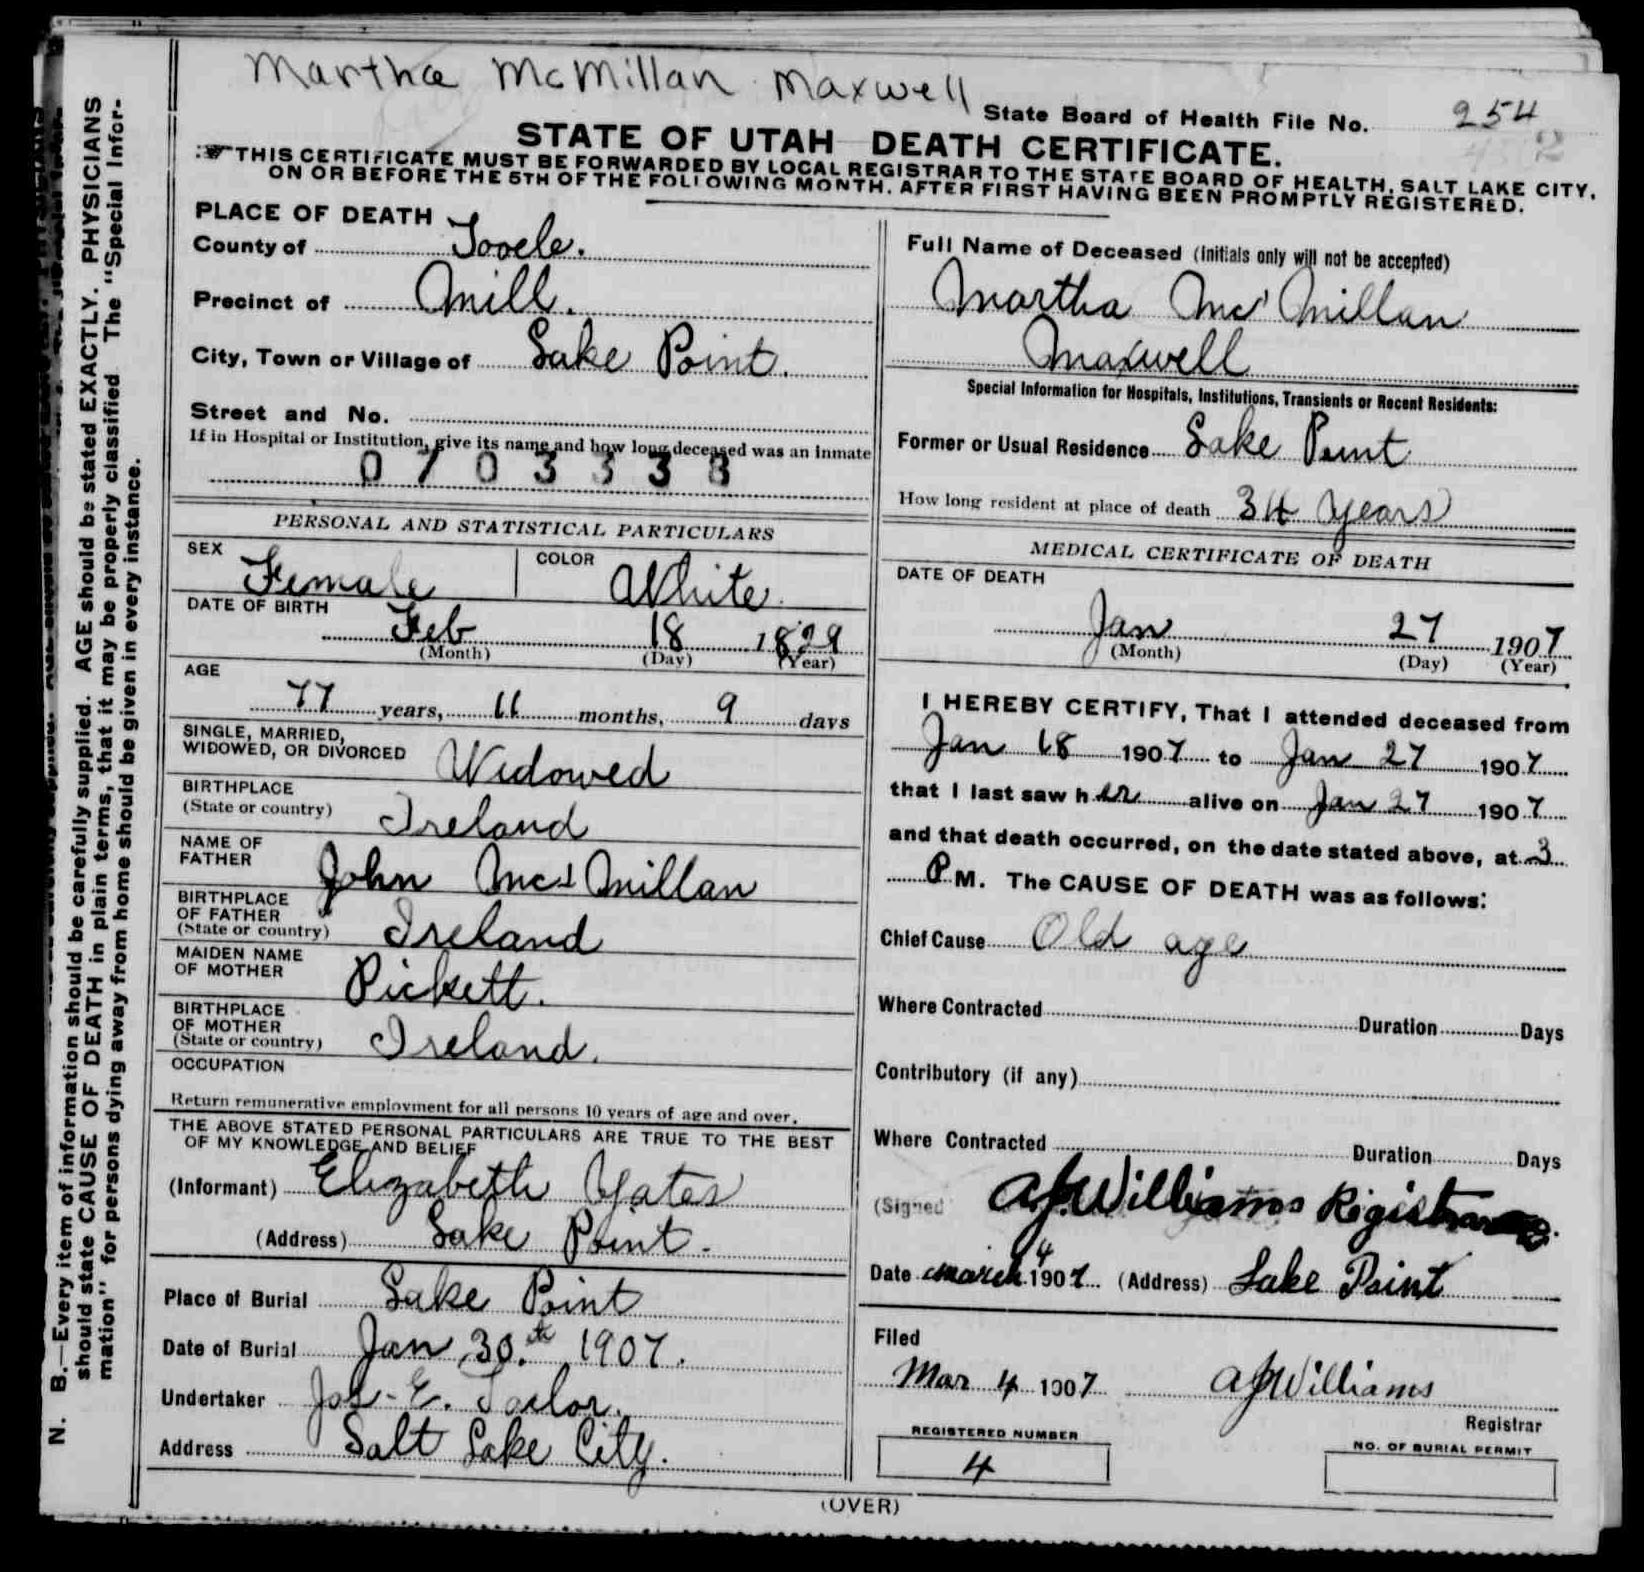 Martha McMillan Maxwell
State Board of Health File No. 254
STATE OF UTAH DEATH CERTIFICATE.
THIS CERTIFICATE MUST BE FORWARDED BY LOCAL REGISTRAR TO THE STATE BOARD OF HEALTH, SALT LAKE CITY,
ON OR BEFORE THE 5TH OF THE FOLLOWING MONTH, AFTER FIRST HAVING BEEN PROMPTLY REGISTERED.
PLACE OF DEATH
County of Tooele.
Precinct of Mill.
City, Town or Village of Lake Point.
Street and No.
If in Hospital or Institution, give its name and how long deceased was an inmate
0703338
PERSONAL AND STATISTICAL PARTICULARS
SEX Female COLOR White.
DATE OF BIRTH
Feb 18 1829
(Month) (Day) (Year)
AGE
77 years, 11 months, 9 days
SINGLE, MARRIED,
WIDOWED, OR DIVORCED Widowed
BIRTHPLACE
(State or country) Ireland
NAME OF
FATHER John McMillan
BIRTHPLACE
OF FATHER
(State or country) Ireland
MAIDEN NAME
OF MOTHER Pickett.
BIRTHPLACE
OF MOTHER
(State or country) Ireland.
OCCUPATION
Return remunerative employment for all persons 10 years of age and over.
THE ABOVE STATED PERSONAL PARTICULARS ARE TRUE TO THE BEST
OF MY KNOWLEDGE AND BELIEF
(Informant) Elizabeth Yates
(Address) Lake Point.
Place of Burial Lake Point
Date of Burial Jan 30.th 1907.
Undertaker Jos. E. Taylor.
Address Salt Lake City.
Full Name of Deceased (Initials only will not be accepted)
Martha Mc'Millan
Maxwell
Special Information for Hospitals, Institutions, Transients or Recent Residents:
Former or Usual Residence Lake Point
How long resident at place of death 34 years
MEDICAL CERTIFICATE OF DEATH
DATE OF DEATH
Jan 27 1907
(Month) (Day) (Year)
I HEREBY CERTIFY, That I attended deceased from
Jan 18 1907 to Jan 27 1907
that I last saw her alive on Jan 27 1907
and that death occurred, on the date stated above, at 3
P M. The CAUSE OF DEATH was as follows:
Chief Cause Old age
Where Contracted Duration Days
Contributory (if any)
Where Contracted Duration Days
(Signed A J Williams Registrar
Date March 4 1907 (Address) Lake Point
Filed
Mar 4 1907 A J Williams
Registrar
REGISTERED NUMBER
4
NO. OF BURIAL PERMIT
(OVER)
N. B.—Every item of information should be carefully supplied. AGE should be stated EXACTLY. PHYSICIANS
should state CAUSE OF DEATH in plain terms, that it may be properly classified The "Special Infor-
mation" for persons dying away from home should be given in every instance.